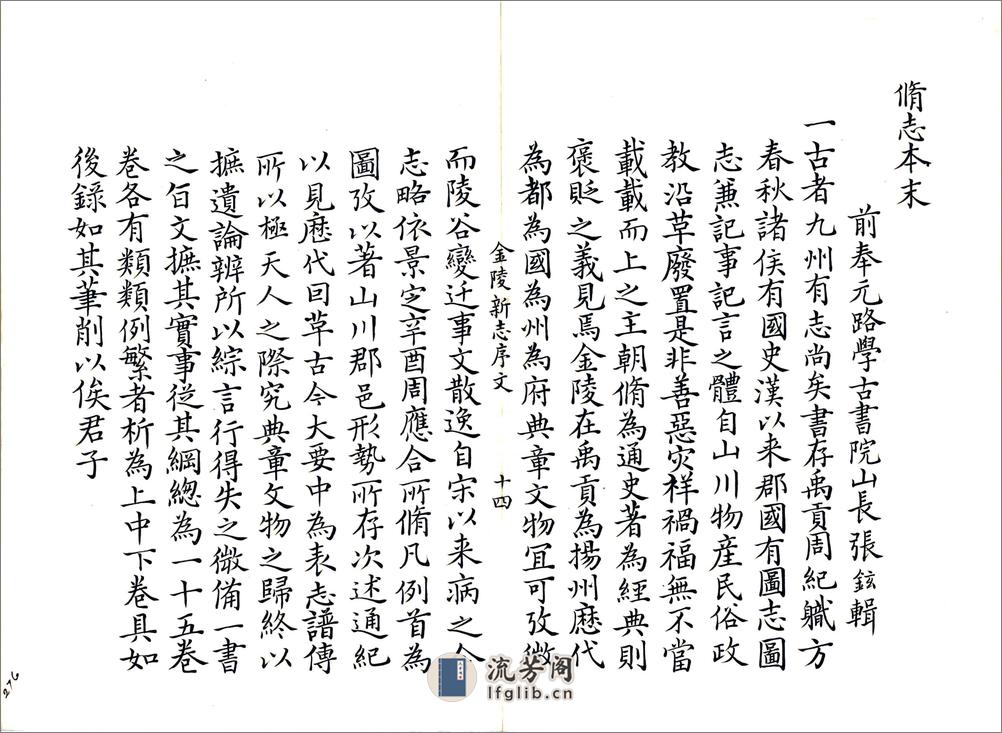 脩志本末
前奉元路學古書院山長張鉉輯
一古者九州有志尚矣書存禹貢周紀職方
春秋諸侯有國史漢以来郡國有圖志圖
志兼記事記言之體自山川物産民俗政
教沿革廢置是非善惡灾祥禍福無不當
載載而上之王朝脩為通史著為經典則
褒貶之義見焉金陵在禹貢為揚州歷代
為都為國為州為府典章文物冝可攷徴
金陵新志序文
十四
而陵谷變迁事文散逸自宋以来病之今
志略依景定辛酉周應合所脩凡例首為
圖攷以著山川郡邑形勢所存次述通紀
以見歷代因革古今大要中為表志譜傳
所以極天人之際究典章文物之歸終以
摭遺論辨所以綜言行得失之微備一書
之旨文摭其實事從其綱總為一十五巻
巻各有類類例繁者析為上中下巻具如
後録如其筆削以俟君子
276
流芳阁
lfglib.cn